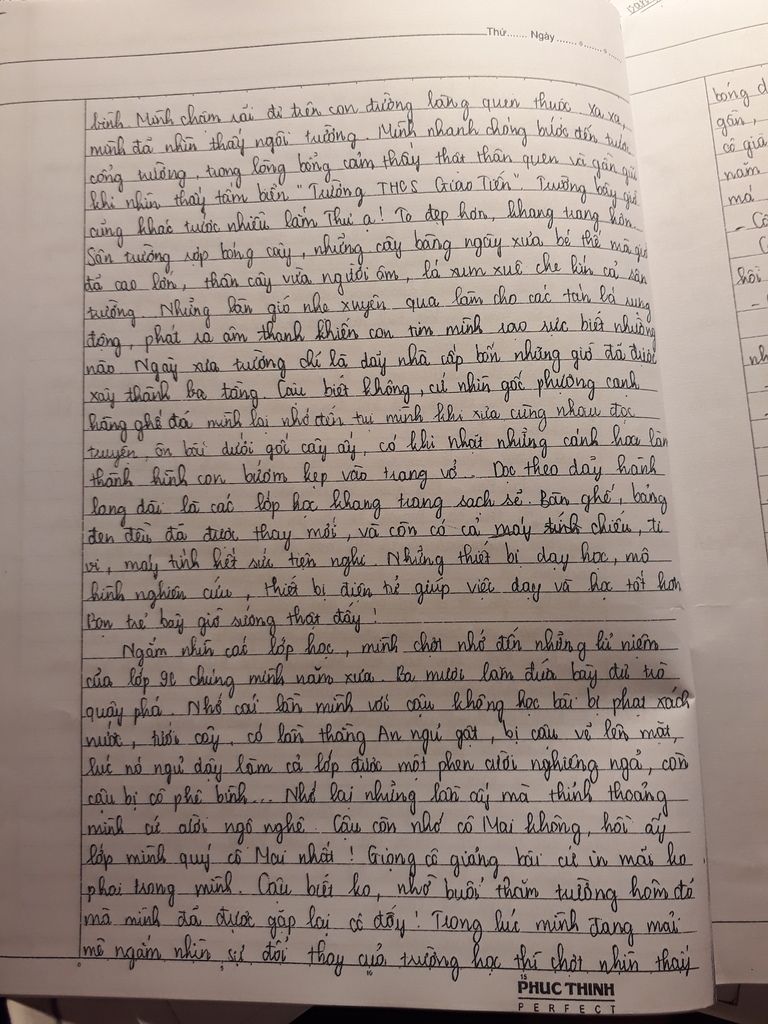 Thứ....... Ngày.......
bình. Mình chậm rãi đi trên con đường làng quen thuộc. Xa xa,
mình đã nhìn thấy ngôi trường. Mình nhanh chóng bước đến trước
cổng trường, trong lòng bỗng cảm thấy thật thân quen và gần gũi
khi nhìn thấy tấm biển "Trường THCS Giao Tiến". Trường bây giờ
cũng khác trước nhiều lắm Thư ạ! To đẹp hơn, khang trang hơn.
Sân trường rợp bóng cây, những cây bàng ngày xưa bé thế mà giờ
đã cao lớn, thân cây vừa người ôm, lá xum xuê che kín cả sân
trường. Những làn gió nhẹ xuyên qua làm cho các tán lá rung
động, phát ra âm thanh khiến con tim mình xao xực biết nhường
nào Ngày xưa trường chỉ là dãy nhà cấp bốn những giờ đã được
xây thành ba tầng. Cậu biết không, cứ nhìn gốc phượng cạnh
hàng ghế đá mình lại nhớ đến tụi mình khi xưa cùng nhau đọc
truyện, ôn bài dưới gốc cây ấy, có khi nhặt những cánh hoa làm
thành hình con bướm kẹp vào trang vở... Dọc theo dãy hành
lang dài là các lớp học khang trang sạch sẽ. Bàn ghế, bảng
đen đều đã được thay mới, và còn có cả máy chiếu, ti
vi, máy tính hết sức tiện nghi. Những thiết bị dạy học, mô
hình nghiên cứu, thiết bị điện tử giúp việc dạy và học tốt hơn
Bọn trẻ bây giờ sướng thật đấy!
Ngắm nhìn các lớp học, mình chợt nhớ đến những kỉ niệm
của lớp 9C chúng mình năm xưa. Ba mươi lăm đứa bày đủ trò
quậy phá. Nhớ cái lần mình với cậu không học bài bị phạt xách
nước, tưới cây, có lần thằng An ngủ gật, bị cậu vẽ lên mặt,
lúc nó ngủ dậy làm cả lớp được một phen cười nghiêng ngả, còn
cậu bị cô phê bình... Nhớ lại những lần ấy mà thỉnh thoảng
mình cứ cười ngô nghê. Cậu còn nhớ cô Mai không, hồi ấy
lớp mình quý cô Mai nhất! Giọng cô giảng bài cứ in mãi ko
phai trong mình. Cậu biết ko, nhờ buổi thăm trường hôm đó
mà mình đã được gặp lại cô đấy! Trong lúc mình đang mải
mê ngắm nhìn sự đổi thay của trường học thì chợt nhìn thấy
15
PHUC THINH
PERFECT
bóng d
gần,
cô giá
năm
má
- Cô
hôi
nh